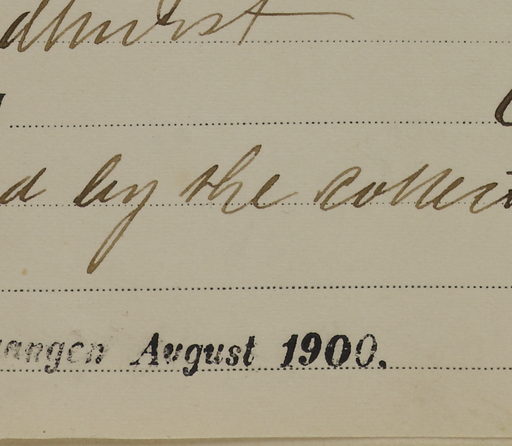 dhurst
d by the collect
angen August 1900.